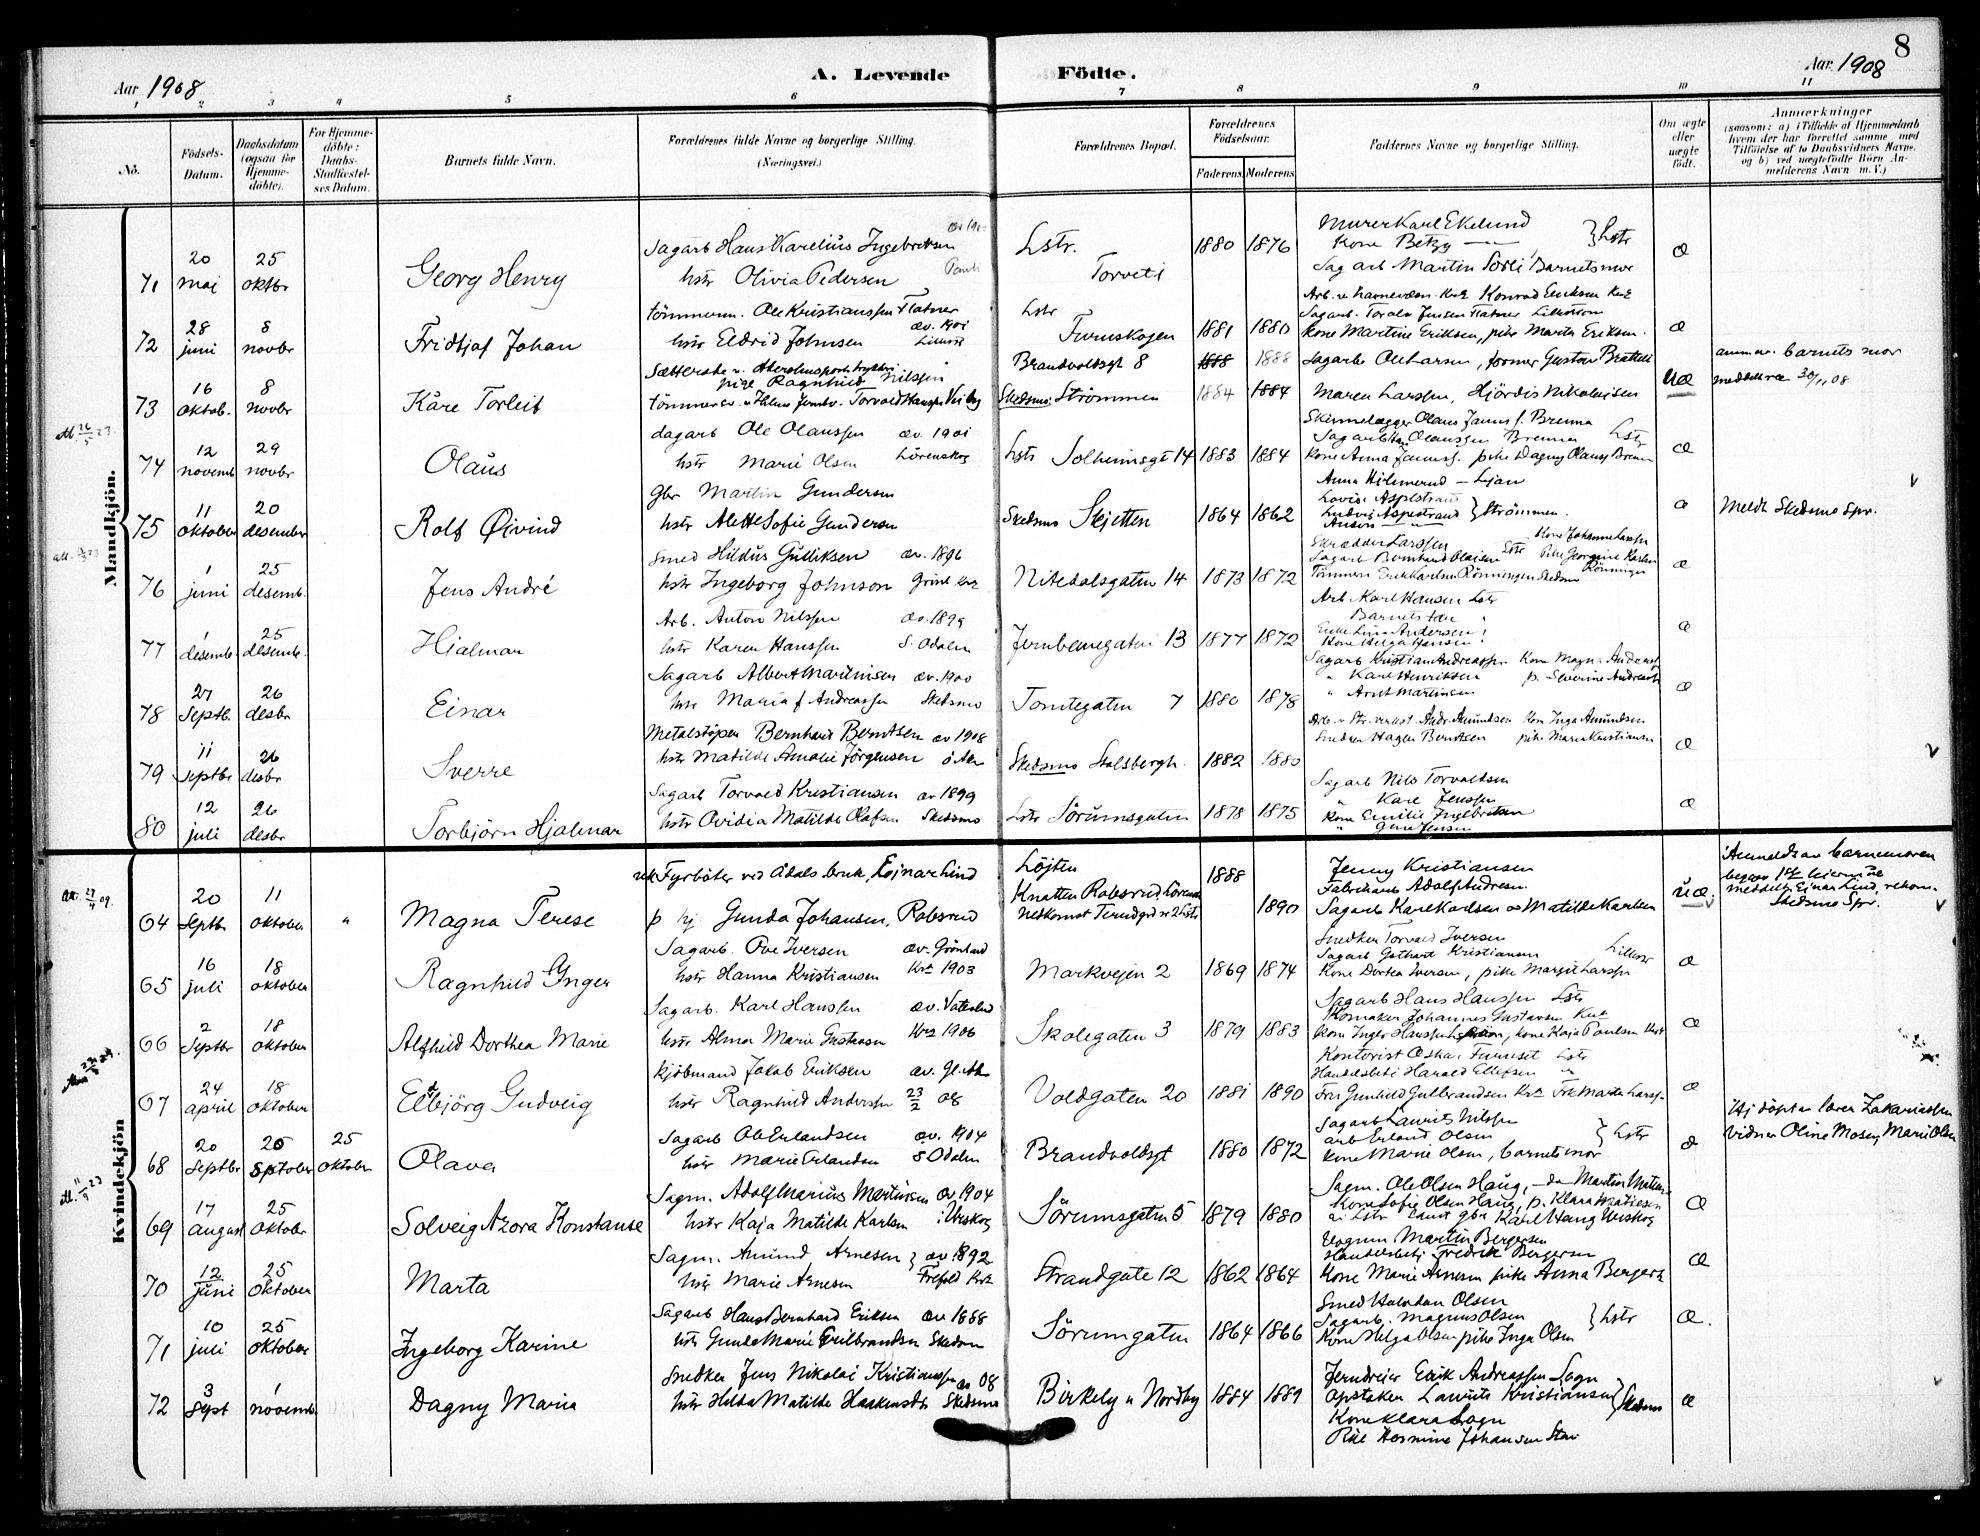 8
Aar 1908
A. Levende Födte.
Aar 1908
1 2 3 4 5 6 7 8 9 10 11
No.
Födsels-Datum.
Daabsdatum (ogsaa for Hjemme-döbte).
For Hjemme-döbte: Daabs-Stadfæstel-ses Datum.
Barnets fulde Navn.
Forældrenes fulde Navne og borgerlige Stilling. (Næringsvei.)
Forældrenes Bopæl.
Forældrenes Födselsaar.
Faderens. Moderens.
Faddernes Navne og borgerlige Stilling.
Om ægte eller uægte födt.
Anmærkninger
(saasom: a) i Tilfælde af Hjemmedaab hvem der har forrettet samme med Tilföielse af to Daabsvidners Navne, og b) ved uægtefödte Börn Anmelderens Navn m. V.)
Mandkjön.
71 20 mai 25 oktbr Georg Henry
Sagarb Hans Karelius Ingebretsen
hstr Olivia Pedersen
Lstr. Torvet 1 1880 1876
Murer Karl Ekelund
Kone Betzy — } Lstr
Sagarb Martin Sörli Barnets mor
æ
72 28 juni 8 novbr Fridtjof Johan
tömmerm. Ole Kristianssen Flatner
hstr Eldrid Johnsen æv. 1901
Lstr Furuskogen 1881 1880
Konrad Eriksen
Kone Martine Eriksen, pike Marta Eriksen.
æ
73 16 oktob. 8 novbr Kåre Torleif
pige Ragnhild Nilssen
Brandvoldsgt 8 1888 1888
Skedsmo: Strömmen 1884 1884
Sagarb Ole Larsen, former Gustav Bratteli
Maren Larsen, Hjördis Nikolaisen
uæ
anm. av. barnets mor
meddelt ræ 30/11 08
74 12 novemb 29 novbr Olaus
dagarb Ole Olaussen æv. 1901
hstr Marie Olsen Lörenskog
Lstr Solheimsgt 14 1883 1884
Sagarb Hans Olaussen Brenna Lstr
Kone Anna Janns f. pike Dagny Olauss Brenna
æ
75 11 oktober 20 desember Rolf Øivind
Gbr Martin Gundersen
hstr Alette Sofie Gundersen
Skedsmo Skjetten 1864 1862
Anna Hilmerud — Ljan
Lovise Aspestrand
Ludvig Aspestrand } Strömmen.
Anton —
æ
Meldt Skedsmo Spr.
76 1 juni 25 desemb. Jens André
Smed Hildus Gulliksen æv. 1896
hstr Ingeborg Johnson
Nitedalsgaten 14 1873 1872
Skrædder Larssen Kone Johanne Larssen
Sagarb Bernhard Olaisen Lstr
Tömmerm Erik Karlsen Rönningen Skedsmo
æ
77 1 desemb. 25 desemb. Hjalmar
Arb. Anton Nilssen æv. 1899
hstr Karen Hanssen S. Odalen
Jernbanegaten 13 1877 1872
Arb Karl Hansen Lstr
Barnets far
Enke Lina Andersen
Kone Helga Hansen
æ
78 27 Septb. 26 desbr Einar
Sagarb Albert Martinsen æv. 1900
hstr Maria f Andreassen Skedsmo
Tomtegaten 7 1880 1878
Sagarb Kristian Andreassen Kone Magna Andreass
" Karl Henriksen p. Severine Andreass
" Arnt Martinsen
æ
79 11 Septbr 26 desbr Sverre
Metalstöper Bernhard Berntsen æv 1908
hstr Matilde Amalie Jörgensen
Skedsmo Stalsbergh. 1882 1880
Andr. Amundsen Kone Inga Amundsen
Smed Hagen Berntsen pike Maria Kristiansen
æ
80 12 juli 26 desbr Torbjörn Hjalmar
Sagarb Torvald Kristiansen æv 1899
hstr Ovidia Matilde Olafsen Skedsmo
Lstr Sörumsgaten 1878 1875
Sagarb Nils Torvaldsen
" Karl Jenssen
Kone Emilie Ingebretsen
æ
Kvindekjön
64 20 Septbr 11 oktober " Magna Terese
Fyrböter ved Ådals bruk, Einar Lind
p hj Gunda Johansen, Robsrud
Löjten
Knatten Robsrud Lörensk
1888 1890
Jenny Kristiansen
Fabrikarb Adolf Andresen.
Sagarb Karl Karlsen æ Matilde Karlsen
uæ.
Anmeldt av barnemoren
begges 1ste leiermål
meddelt Einar Lind, rekom.
Skedsmo Spr.
65 16 juli 18 oktober Ragnhild Ynger
Sagarb. Ove Iversen æv. Grönland
hstr Hanna Kristiansen Kra 1903
Markvejen 2 1869 1874
Snedker Torvald Iversen
Sagarb Gothart Kristiansen
Kone Dortea Iversen, pike Margit Larssen
æ
66 2 Septbr 18 oktober Alfhild Dorthea Marie
Sagarb. Karl Hanssen æv. Vaterland
hstr Alma Marie Gustavsen Kra 1906
Skolegaten 3 1879 1883
Sagarb Hans Hanssen Lstr
Skomaker Johannes Gustavsen
Kone Inger Hanssen, kone Kaja Paulsen
æ
67 24 april 18 oktober Eldbjörg Gudveig
kjöbmand Jakob Eriksen æv. Gl. Aker
hstr Ragnhild Andersen 23/2 08
Voldgaten 20 1881 1890
Kontorist Oskar Furuset Lstr
Handelsbetj Harald Ellefsen "
Fru Gunhild Gulbrandsen Kra Frk Marta Larssen
æ
68 20 Septbr 20 Sptober 25 oktober Olava
Sagarb Ole Erlandsen æv. 1904
hstr Marie Erlandsen S Odalen
Brandvoldsgt 1880 1872
Sagarb Laurits Nilssen
arb Erland Olsen } Lstr
kone Marie Olsen, barnets mor
æ
Hj döpt av lærer Zakariassen
Vidner Oline Moseng Marie Olsen
69 17 august 25 oktober Solveig Azora Konstanse
Sagm. Adolf Marius Martinsen æv. 1904
hstr Kaja Matilde Karlsen i Urskog
Sörumsgaten 5 1879 1880
Sagm. Ole Olsen Haug, — do Martin Matiesen
Kone Sofie Olsen Haug, p. Klara Matiesen
av Lstr samt gbr Karl Haug Urskog
æ
70 12 juni 25 oktober Marta
Sagm. Amund Arnesen } æv 1892
hstr Marie Arnesen
Strandgate 12 1862 1864
Vognm Martin Bergersen
Handelsbetj Fredrik Bergersen
Kone Marie Arnesen pike Anna Bergers
æ
71 10 juli 25 oktober Ingeborg Karine
Sagarb Hans Bernhard Eriksen æv 1888
hstr Gunda Marie Gulbrandsen Skedsmo
Sörumgaten 1864 1866
Smed Halvdan Olsen
Sagarb. Magnus Olsen } Lstr
Kone Helga Olsen pike Inga Olsen
æ.
72 3 Sept 1 novemb. Dagny Maria
Snedker Jens Nikolai Kristianssen æv 08
hstr Hilda Matilde Haakenstn Skedsmo
Birkely u Nordby 1884 1889
Jerndreier Erik Andreassen Sogn
Opstaker Laurits Kristiansen } Skedsmo
Kone Klara Sogn
Pike Hermine Johansen
æ